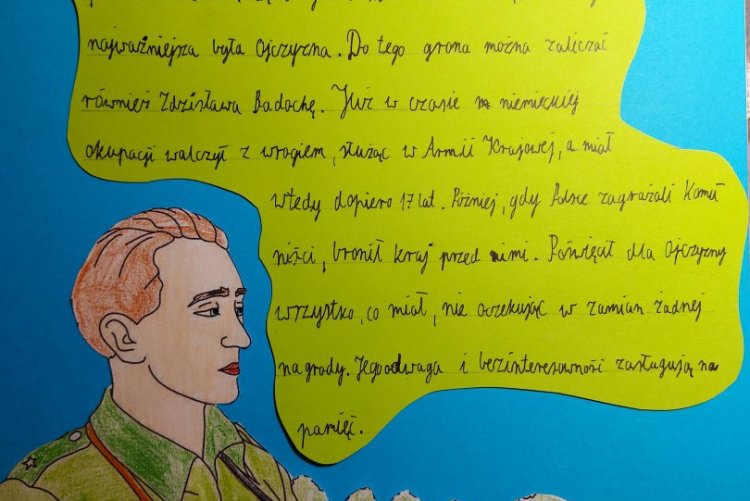 najważniejsza była Ojczyzna. Do tego grona można zaliczać
również Zdzisława Badochę. Już w czasie niemieckiej
okupacji walczył z wrogiem, służąc w Armii Krajowej, a miał
wtedy dopiero 17 lat. Później, gdy Polsce zagrażali Komu
niści, bronił kraj przed nimi. Poświęcał dla Ojczyzny
wszystko, co miał, nie oczekując w zamian żadnej
nagrody. Jego odwaga i bezinteresowność zasługują na
pamięć.